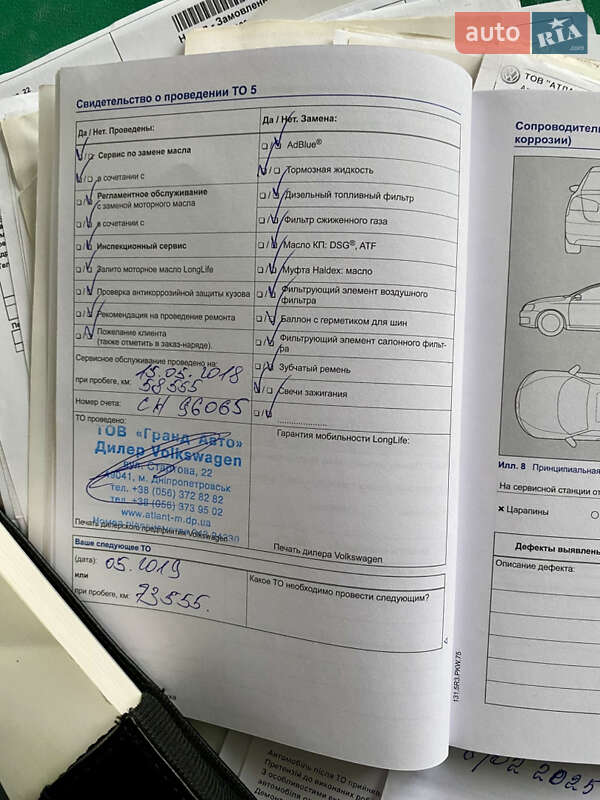 auto RIA .com
- Замовлення
ТОВ "АТЛА
Свидетельство о проведении ТО 5
Да / Нет. Проведены:
Сервис по замене масла
в сочетании с
Регламентное обслуживание
с заменой моторного масла
в сочетании с
Инспекционный сервис
Залито моторное масло LongLife
Проверка антикоррозийной защиты кузова
Рекомендация на проведение ремонта
Пожелание клиента
(также отметить в заказ-наряде).
Сервисное обслуживание проведено на:
15.05.2018
при пробеге, км: 58555
Номер счета: СН 96065
ТО проведено:
ТОВ «Гранд Авто»
Дилер Volkswagen
вул. Стартова, 22
49041, м. Дніпропетровськ
тел. +38 (056) 372 82 82
тел. +38 (056) 373 95 02
www.atlant-m.dp.ua
Печать дилерского предприятия Volkswagen
Да / Нет. Замена:
AdBlue®
Тормозная жидкость
Дизельный топливный фильтр
Фильтр сжиженного газа
Масло КП: DSG®, ATF
Муфта Haldex: масло
Фильтрующий элемент воздушного
фильтра
Баллон с герметиком для шин
Фильтрующий элемент салонного фильт-
ра
Зубчатый ремень
Свечи зажигания
Гарантия мобильности LongLife:
Печать дилера Volkswagen
Ваше следующее ТО
(дата): 05.2019
или
при пробеге, км: 73555.
Какое ТО необходимо провести следующим?
131.5R3.PKW.75
Сопроводитель
коррозии)
Илл. 8 Принципиальная
На сервисной станции от
× Царапины
Дефекты выявлены
Описание дефекта:
Автомобіль після ТО прийняв
Претензій до виконаних роб
З особливостями
02 2025